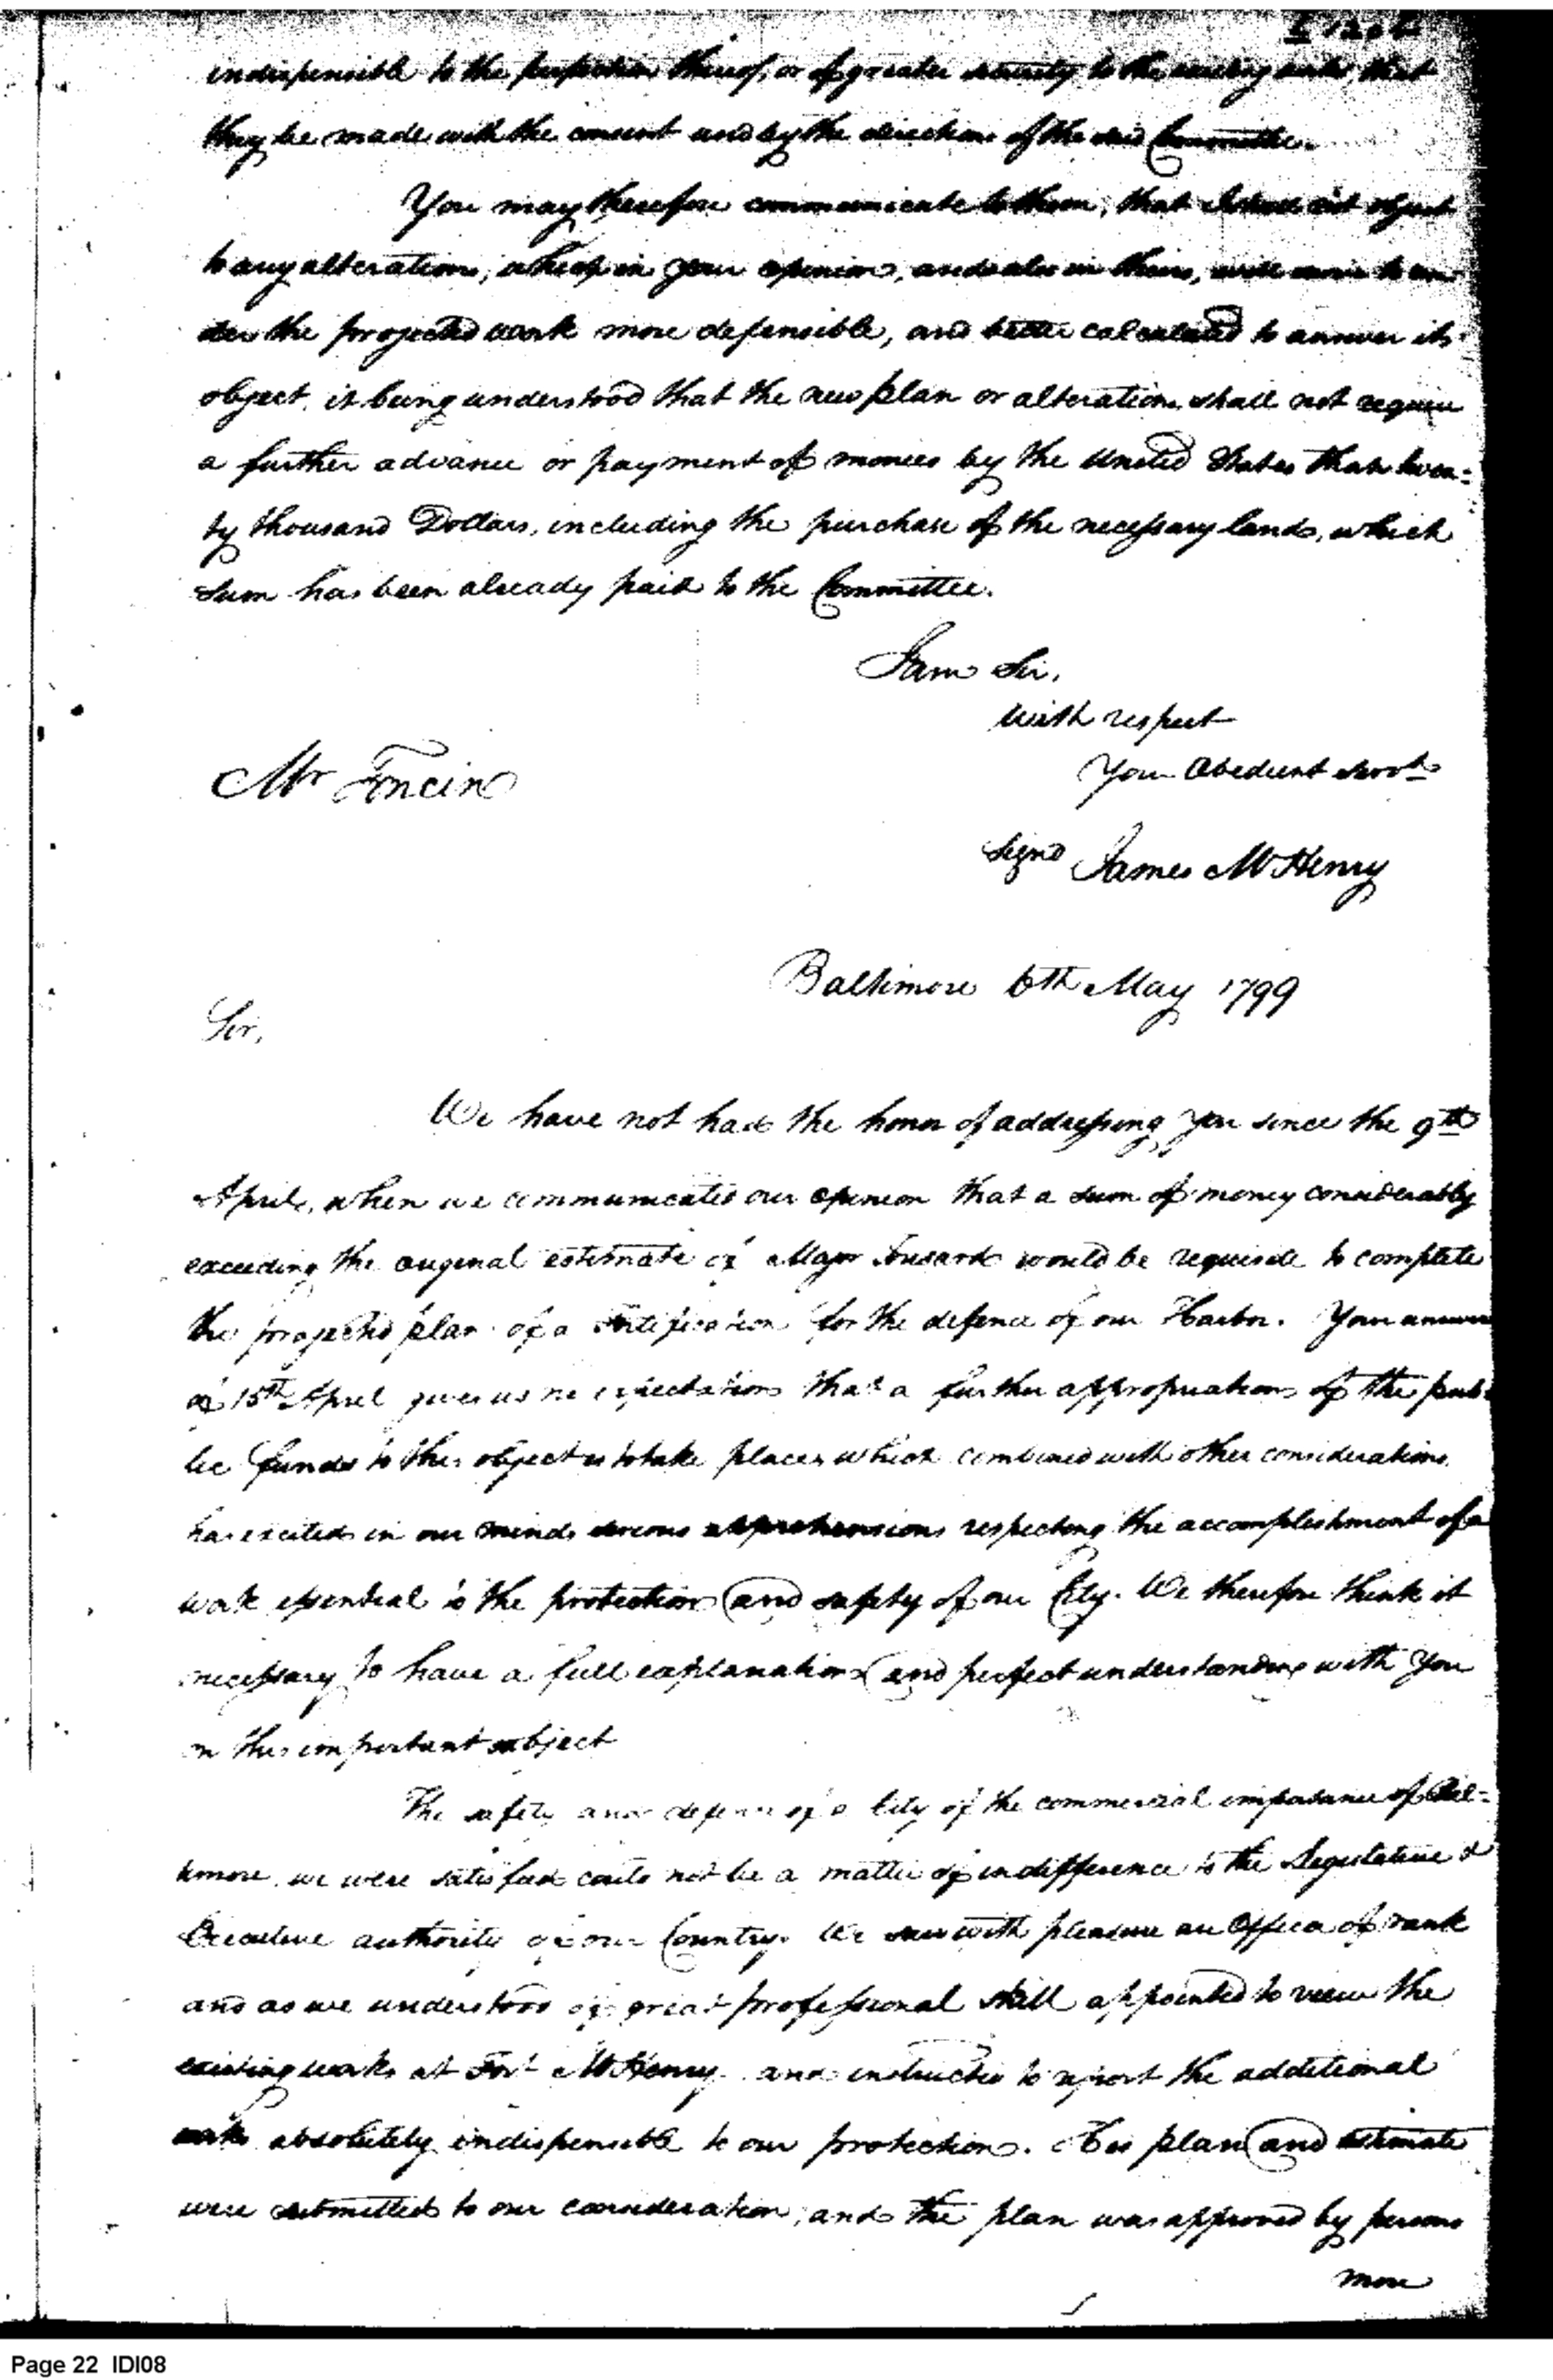 indispensible to the perfection thereof, or of greater security to the existing works, that
they be made with the consent and by the direction of the said Committee.
You may therefore communicate to them, that I shall not object
to any alteration, which in your opinion, and also in theirs, will serve to ren-
der the projected work more defensible, and better calculated to answer its
object, it being understood that the new plan or alteration shall not require
a further advance or payment of monies by the United States than twen=
ty thousand Dollars, including the purchase of the necessary lands, which
sum has been already paid to the Committee.
I am Sir,
with respect
Your Obedient Servt
Mr Foncin
Signd James McHenry
Baltimore 6th May 1799
Sir,
We have not had the honor of addressing you since the 9th
April, when we communicated our opinion that a sum of money considerably
exceeding the original estimate of Major Tousard would be requisite to complete
the projected plan of a Fortification for the defence of our Harbor. Your answer
of 15th April gives us no expectation that a further appropriation of the pub-
lic funds to this object is to take place, which combined with other considerations
has excited in our minds serious apprehensions respecting the accomplishment of a
work essential to the protection and safety of our City. We therefore think it
necessary to have a full explanation and perfect understanding with you
on this important subject
The safety and defence of a City of the commercial importance of Bal=
timore, we were satisfied could not be a matter of indifference to the Legislative &
Executive authority of our Country. We saw with pleasure an Officer of rank
and as we understood of great professional skill appointed to view the
existing works at Fort McHenry and instructed to report the additional
works absolutely indispensible to our protection. His plan and estimate
were submitted to our consideration, and the plan was approved by persons
more
Page 22 IDI08